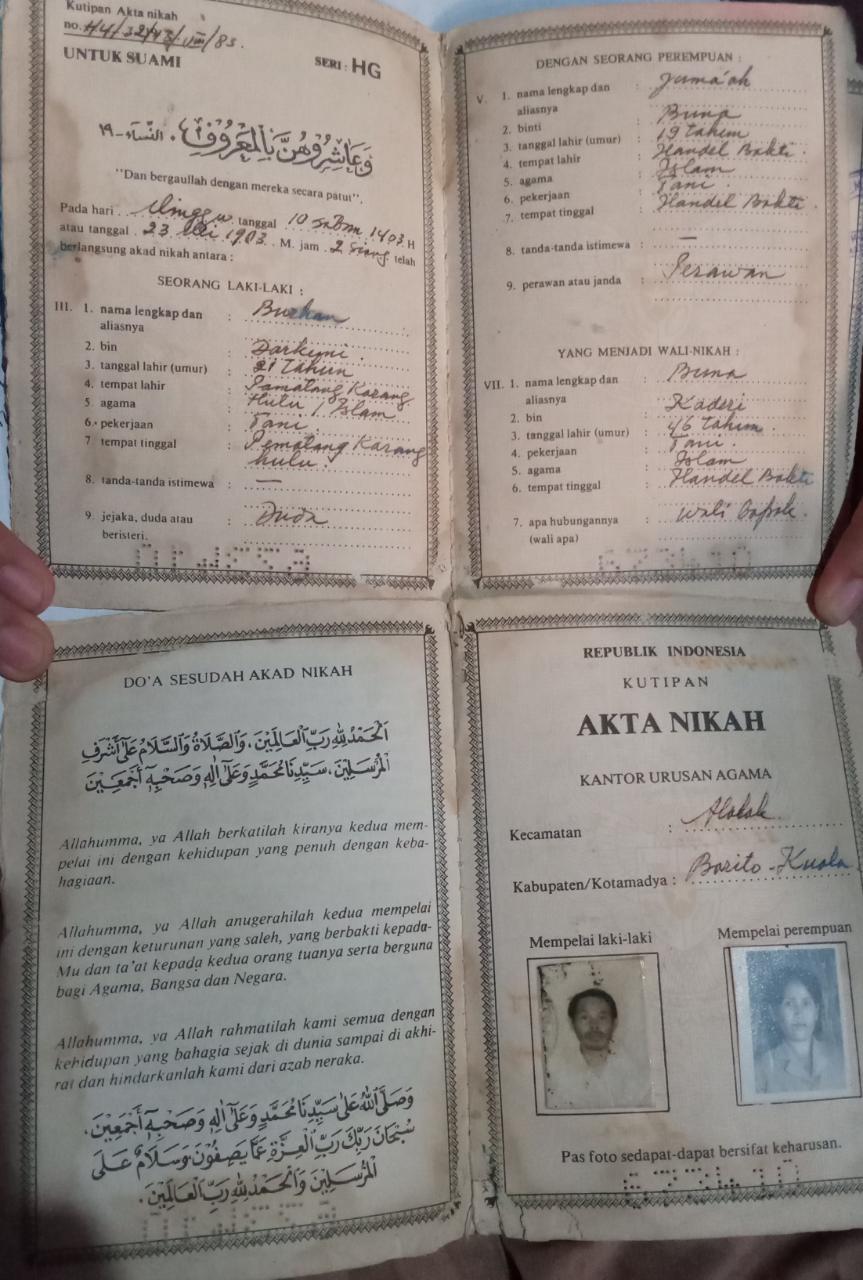 Kutipan Akta nikah
no. H4/32/43/VIII/83.
UNTUK SUAMI
SERI : HG
وَعَاشِرُوهُنَّ بِالْمَعْرُوفِ . النّساء - ١٩
"Dan bergaullah dengan mereka secara patut".
Pada hari . . Minggu . tanggal 10 1403 H
atau tanggal . 23 Mei 1983 . . M. jam . 2 siang telah
berlangsung akad nikah antara :
SEORANG LAKI-LAKI :
III. 1. nama lengkap dan aliasnya : Burhan
2. bin : Darkuni .
3. tanggal lahir (umur) : 21 tahun
4. tempat lahir : Pamatang Karang
5. agama : Hulu / Islam
6. pekerjaan : Tani .
7 tempat tinggal : Pematang Karang
hulu .
8. tanda-tanda istimewa : —
9. jejaka, duda atau beristeri. : Duda
DENGAN SEORANG PEREMPUAN :
V. 1. nama lengkap dan aliasnya : Jama'ah
2. binti : Buna
3. tanggal lahir (umur) : 19 tahun
4. tempat lahir : Handel Bakti .
5. agama : Islam
6. pekerjaan : Tani .
7. tempat tinggal : Handel Bakti .
8. tanda-tanda istimewa : —
9. perawan atau janda : Perawan
YANG MENJADI WALI-NIKAH :
VII. 1. nama lengkap dan aliasnya : Buna
2. bin : Kaderi
3. tanggal lahir (umur) : 46 tahun .
4. pekerjaan : Tani .
5. agama : Islam
6. tempat tinggal : Handel Bakti
7. apa hubungannya (wali apa) : wali bapak .
DO'A SESUDAH AKAD NIKAH
اَلْحَمْدُ لِلّٰهِ رَبِّ الْعَالَمِيْنَ ، وَالصَّلَاةُ وَالسَّلَامُ عَلَى أَشْرَفِ
الْمُرْسَلِيْنَ ، سَيِّدِنَا مُحَمَّدٍ وَعَلَى اٰلِهِ وَصَحْبِهِ أَجْمَعِيْنَ
Allahumma, ya Allah berkatilah kiranya kedua mem-
pelai ini dengan kehidupan yang penuh dengan keba-
hagiaan.
Allahumma, ya Allah anugerahilah kedua mempelai
ini dengan keturunan yang saleh, yang berbakti kepada-
Mu dan ta'at kepada kedua orang tuanya serta berguna
bagi Agama, Bangsa dan Negara.
Allahumma, ya Allah rahmatilah kami semua dengan
kehidupan yang bahagia sejak di dunia sampai di akhi-
rat dan hindarkanlah kami dari azab neraka.
وَصَلَّى اللّٰهُ عَلَى سَيِّدِنَا مُحَمَّدٍ وَعَلَى اٰلِهِ وَصَحْبِهِ أَجْمَعِيْنَ .
سُبْحَانَ رَبِّكَ رَبِّ الْعِزَّةِ عَمَّا يَصِفُوْنَ وَسَلَامٌ عَلَى
الْمُرْسَلِيْنَ وَالْحَمْدُ لِلّٰهِ رَبِّ الْعَالَمِيْنَ .
REPUBLIK INDONESIA
KUTIPAN
AKTA NIKAH
KANTOR URUSAN AGAMA
Kecamatan : Alalak
Kabupaten/Kotamadya : Barito - Kuala
Mempelai laki-laki
Mempelai perempuan
Pas foto sedapat-dapat bersifat keharusan.